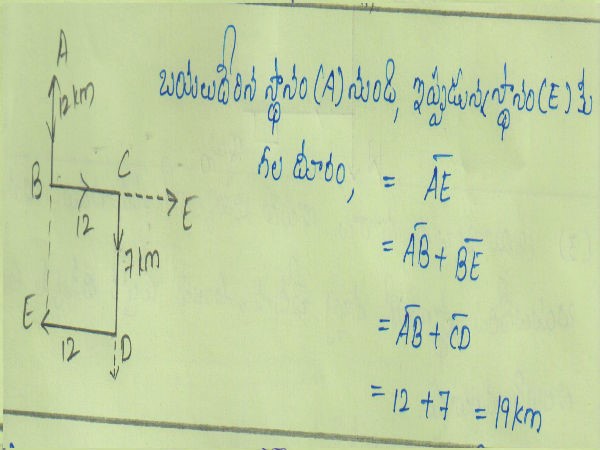 A
12 km
B
C
12
E
7 km
E
12
D
బయలుదేరిన స్థానం (A) నుండి, ఇప్పుడున్న స్థానం (E) కు
గల దూరం, = A̅E̅
= A̅B̅ + B̅E̅
= A̅B̅ + C̅D̅
= 12 + 7 = 19 km